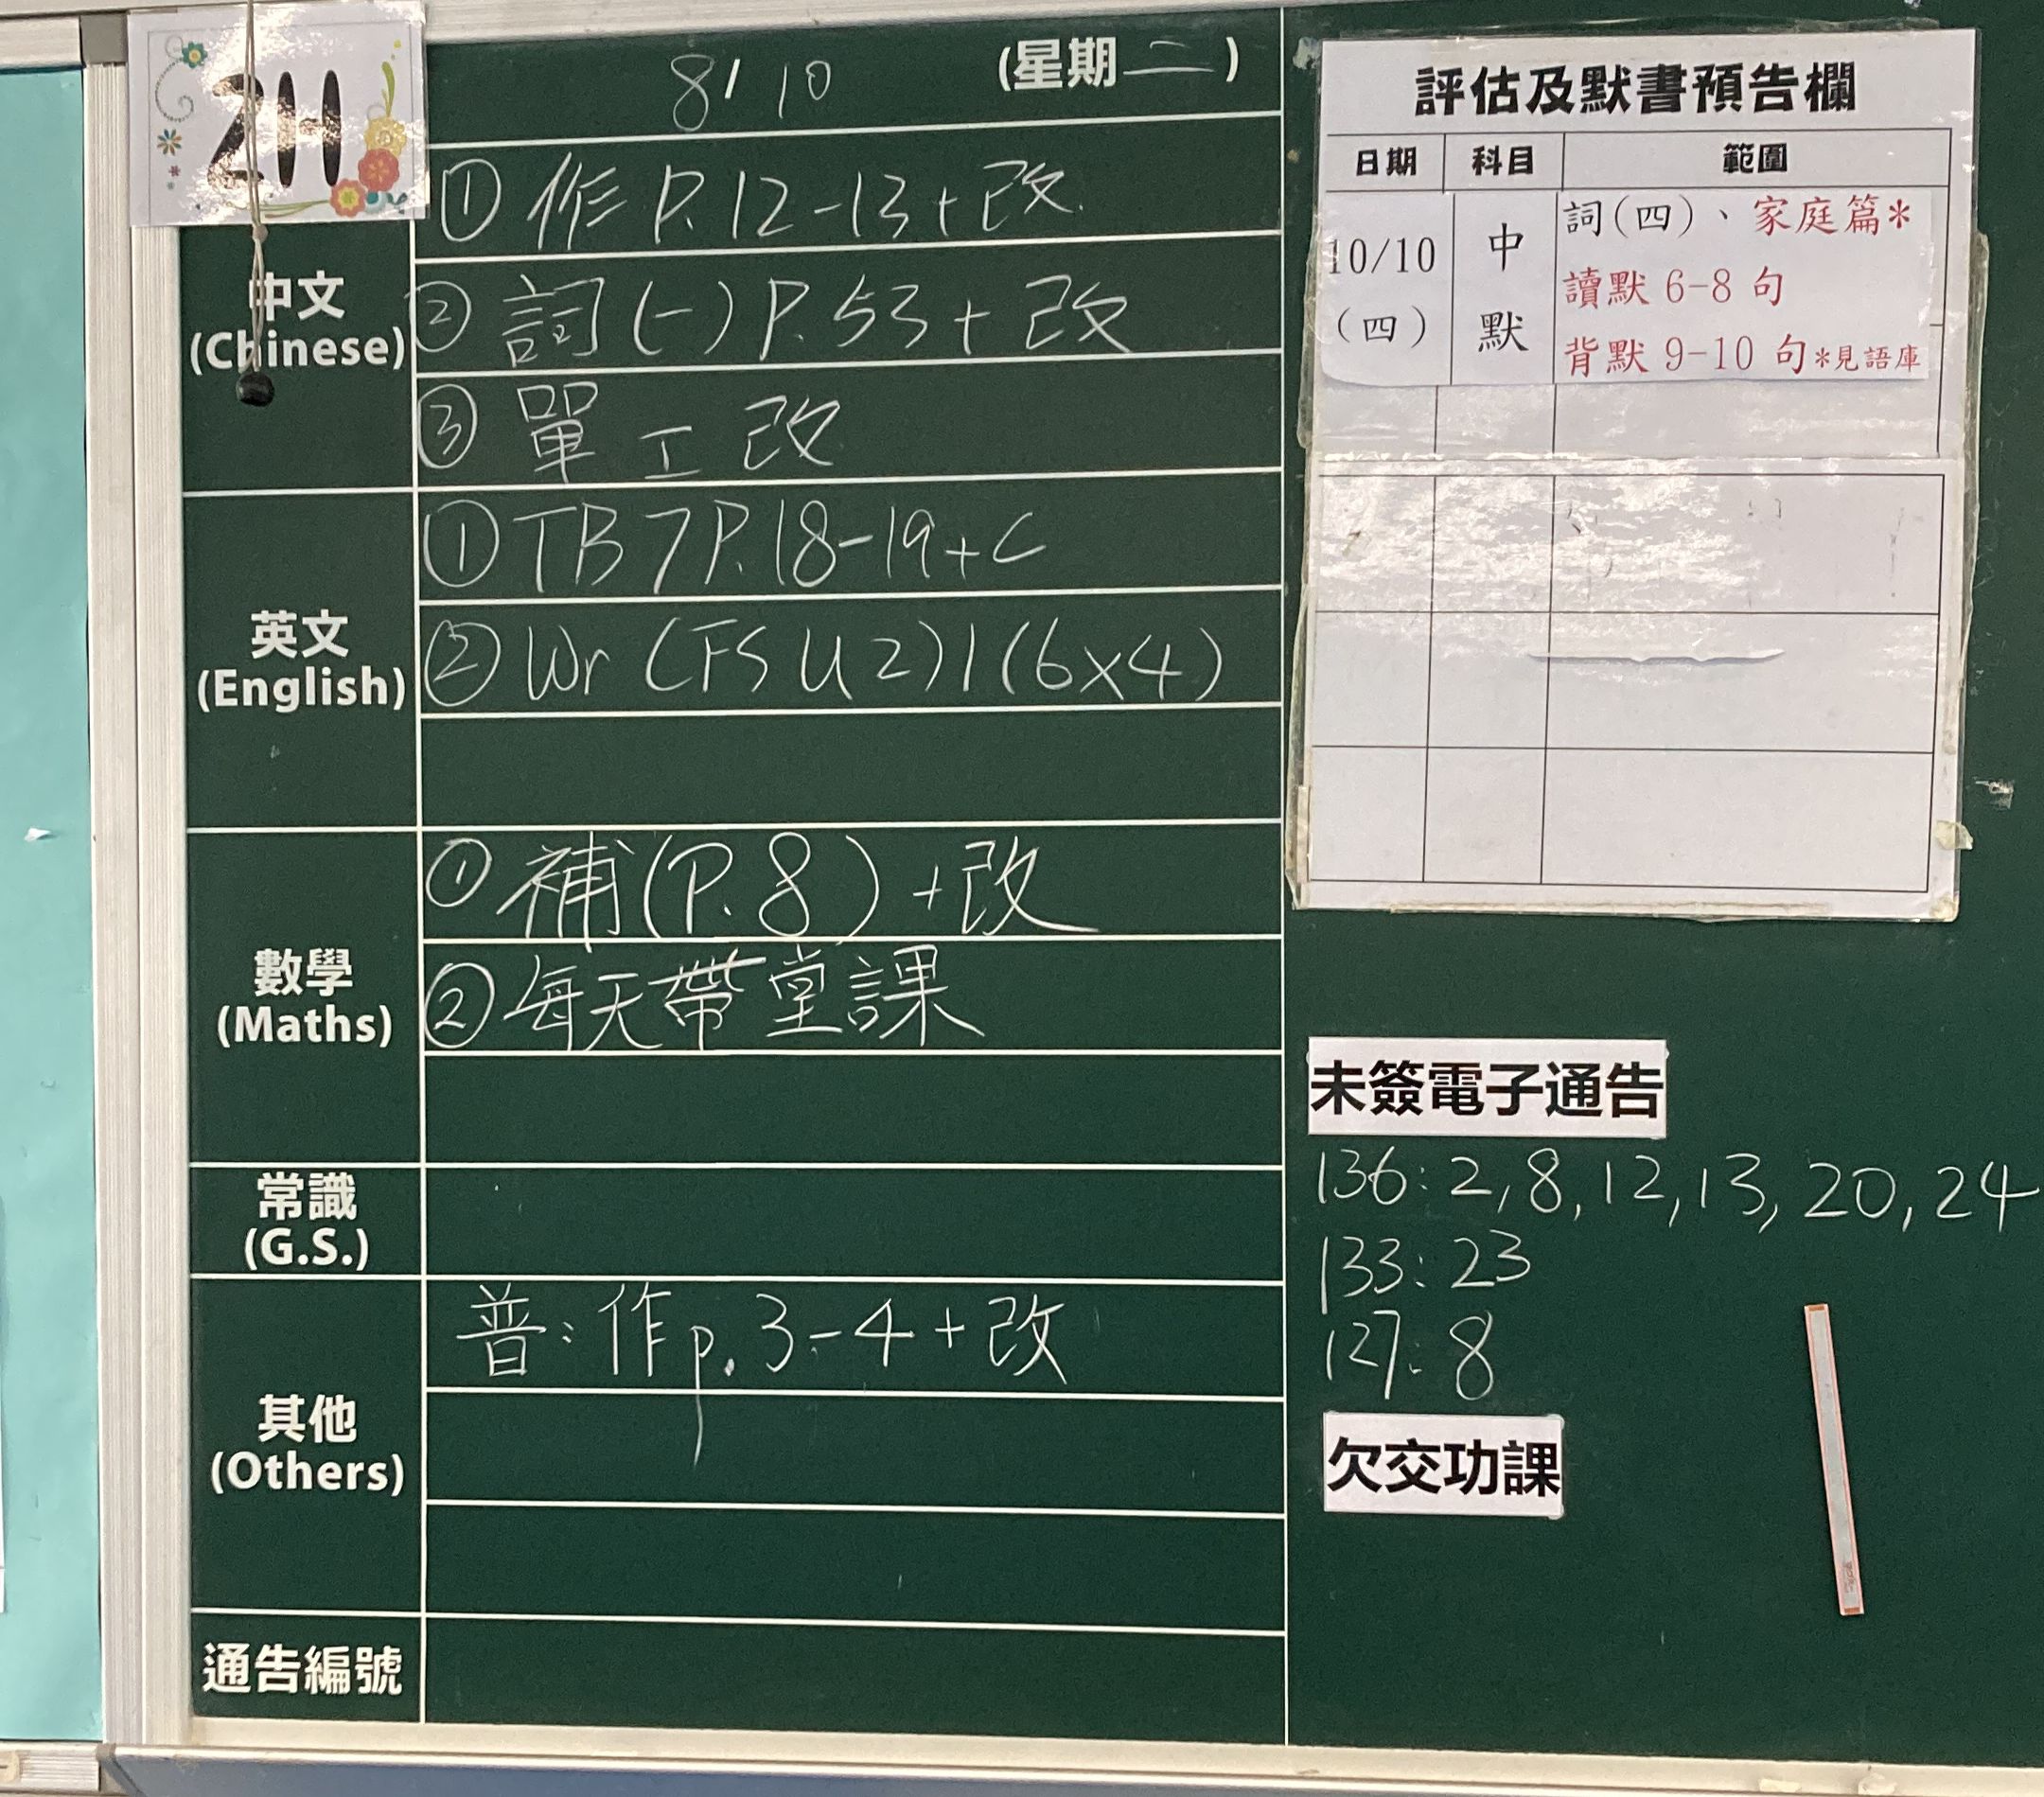 2H
8/10 (星期二)
中文
(Chinese)
① 作 P.12-13+改
② 詞(一) P.53+改
③ 單工改
英文
(English)
① TB 7 P.18-19+C
② Wr (FS U2) 1 (6x4)
數學
(Maths)
① 補(P.8)+改
② 每天帶堂課
常識
(G.S.)
其他
(Others)
普：作p.3-4+改
通告編號
評估及默書預告欄
日期 科目 範圍
10/10
(四)
中
默
詞(四)、家庭篇*
讀默 6-8 句
背默 9-10 句*見語庫
未簽電子通告
136: 2, 8, 12, 13, 20, 24
133: 23
127: 8
欠交功課